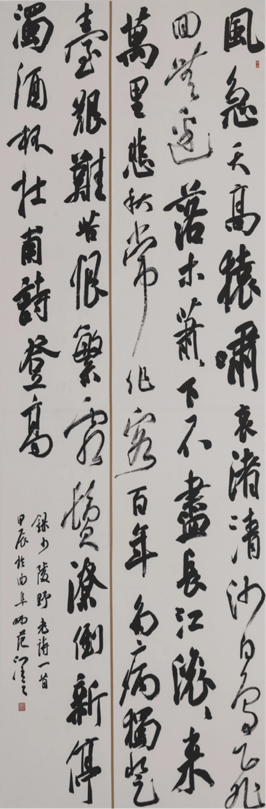 風急天高猿嘯哀渚清沙白鳥飛
回無邊落木蕭〻下不盡長江滾〻來
萬里悲秋常作客百年多病獨登
臺艱難苦恨繁霜鬢潦倒新停
濁酒杯杜甫詩登高
錄少陵野老詩一首
甲辰於曲阜師范